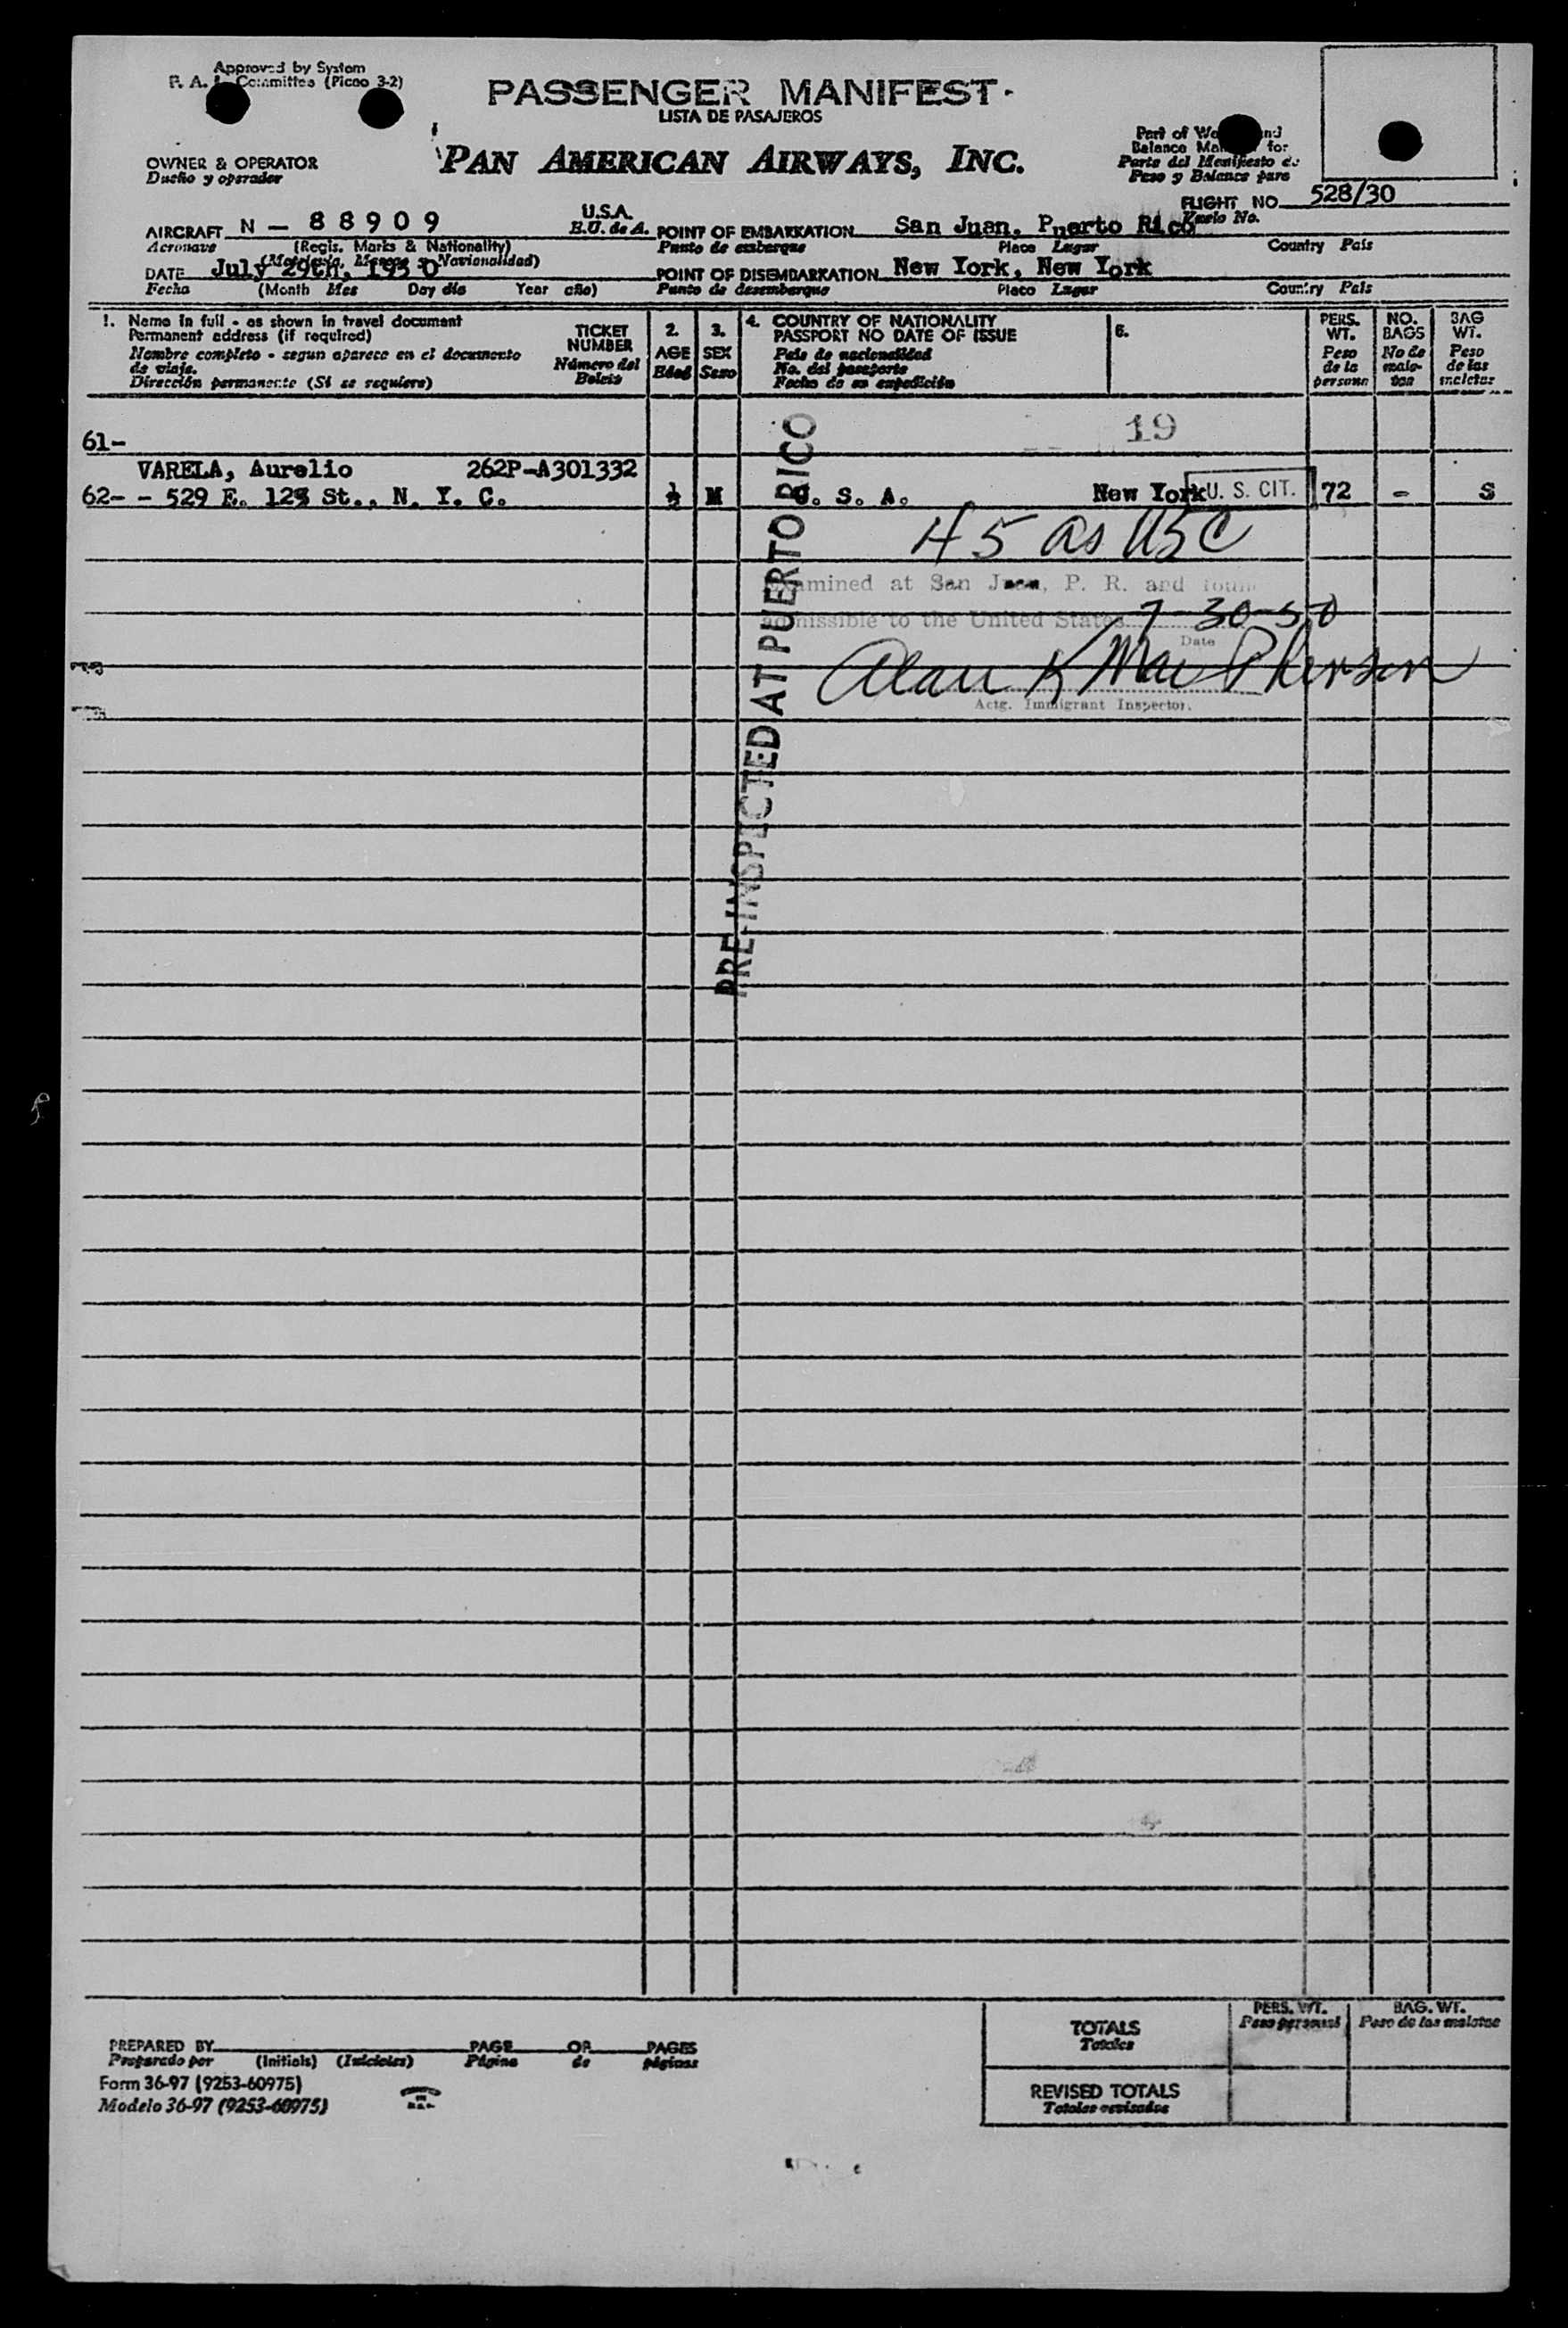 Approved by System
P. A. Committee (Picao 3-2)
PASSENGER MANIFEST
LISTA DE PASAJEROS
PAN AMERICAN AIRWAYS, INC.
OWNER & OPERATOR
Dueño y operador
Part of and
Balance for
Parte del Manifiesto de
Peso y Balance para
FLIGHT NO. 528/30
Vuelo No.
AIRCRAFT N - 88909 U.S.A.
E.U. de A.
Aeronave (Regis. Marks & Nationality)
POINT OF EMBARKATION San Juan, Puerto Rico
Punto de embarque Place Lugar Country País
DATE July 29th, 1950
Fecha (Month Mes Day día Year año)
POINT OF DISEMBARKATION New York, New York
Punto de desembarque Place Lugar Country País
1. Name in full - as shown in travel document
Permanent address (if required)
Nombre completo - segun aparece en el documento
de viaje.
Dirección permanente (Si se requiere)
TICKET
NUMBER
Número del
Boleto
2.
AGE
Edad
3.
SEX
Sexo
4. COUNTRY OF NATIONALITY
PASSPORT NO DATE OF ISSUE
País de nacionalidad
No. del pasaporte
Fecha de su expedición
6.
PERS.
WT.
Peso
de la
persona
NO.
BAGS
No de
male-
tas
BAG
WT.
Peso
de las
maletas
19
61-
VARELA, Aurelio 262P-A301332
62- - 529 E. St., N. Y. C. ½ M U. S. A. New York U. S. CIT. 72 - S
45 as USC
Examined at San Juan, P. R. and found
admissible to the United States 7-30-50
Date
Alan K MacPherson
Actg. Immigrant Inspector.
PRE-INSPECTED AT PUERTO RICO
PREPARED BY PAGE OF PAGES
Preparado por (Initials) (Iniciales) Página de páginas
Form 36-97 (9253-60975)
Modelo 36-97 (9253-60975)
PERS. WT.
Peso personal
BAG. WT.
Peso de las maletas
TOTALS
Totales
REVISED TOTALS
Totales revisados